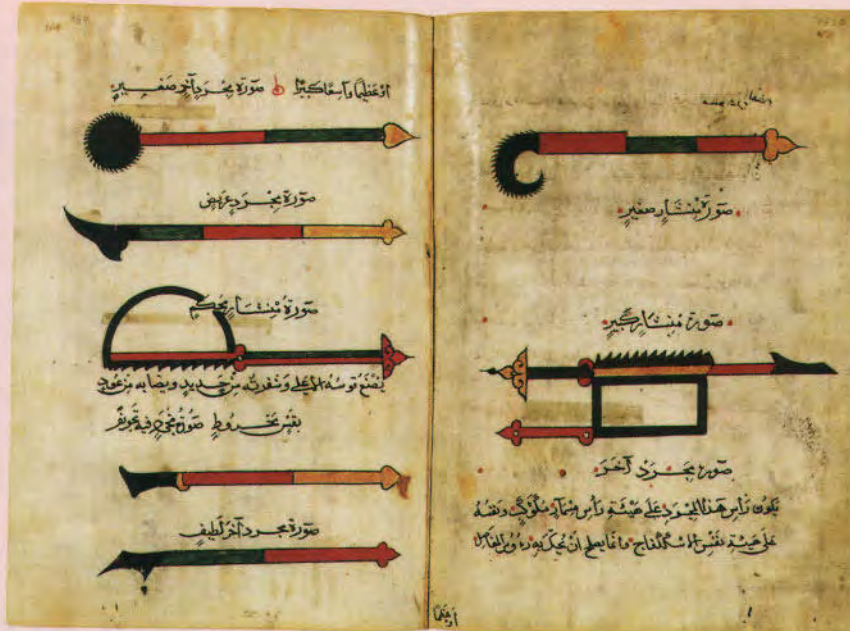 صورة منشار صغير
صورة منشار كبير
صورة مجرد آخر
يكون رأس هذا المجرد على هيئة رأس مسمار مكوكب ونقشه
على هيئة نقش الاسكلفاج وانما يصلح ان يحك به رؤوس المفاصل
او عظما
او عظيما واسعا كبيرا صورة مجرد آخر صغير
صورة مجرد عريض
صورة منشار محكم
يصنع قوسه الاعلى وشفرته من حديد ونصابه من عود
بقس مخروط صورة مجرد فيه تجويف
صورة مجرد آخر لطيف